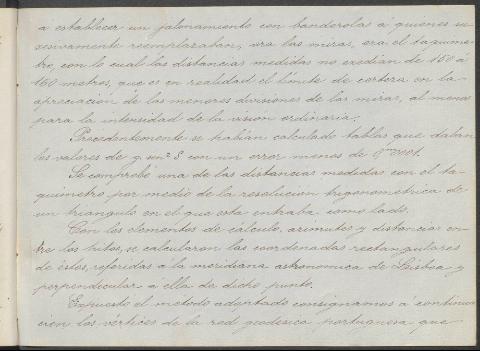 á establecer un jalonamiento con banderolas á quienes su-
cesivamente reemplazaban, ora las miras, ora el taquíme-
tro, con lo cual las distancias medidas no excedian de 150 á
160 metros, que es en realidad el límite de certeza en la
apreciacion de las menores divisiones de las miras, al menos
para la intensidad de la vision ordinaria.
Precedentemente se habían calculado tablas que daban
los valores de g sen² S con un error menos de 0m0001.
Se comprobó una de las distancias medidas con el ta-
químetro por medio de la resolucion trigonométrica de
un triangulo en el que esta entraba como lado.
Con los elementos de cálculo, azimutes y distancias en-
tre los hitos, se calcularon las coordenadas rectangulares
de éstos, referidas á la meridiana astronomica de Lisboa y
perpendicular a ella de dicho punto.
Expuesto el método adoptado consignamos a continua-
cion los vértices de la red geodesica portuguesa que